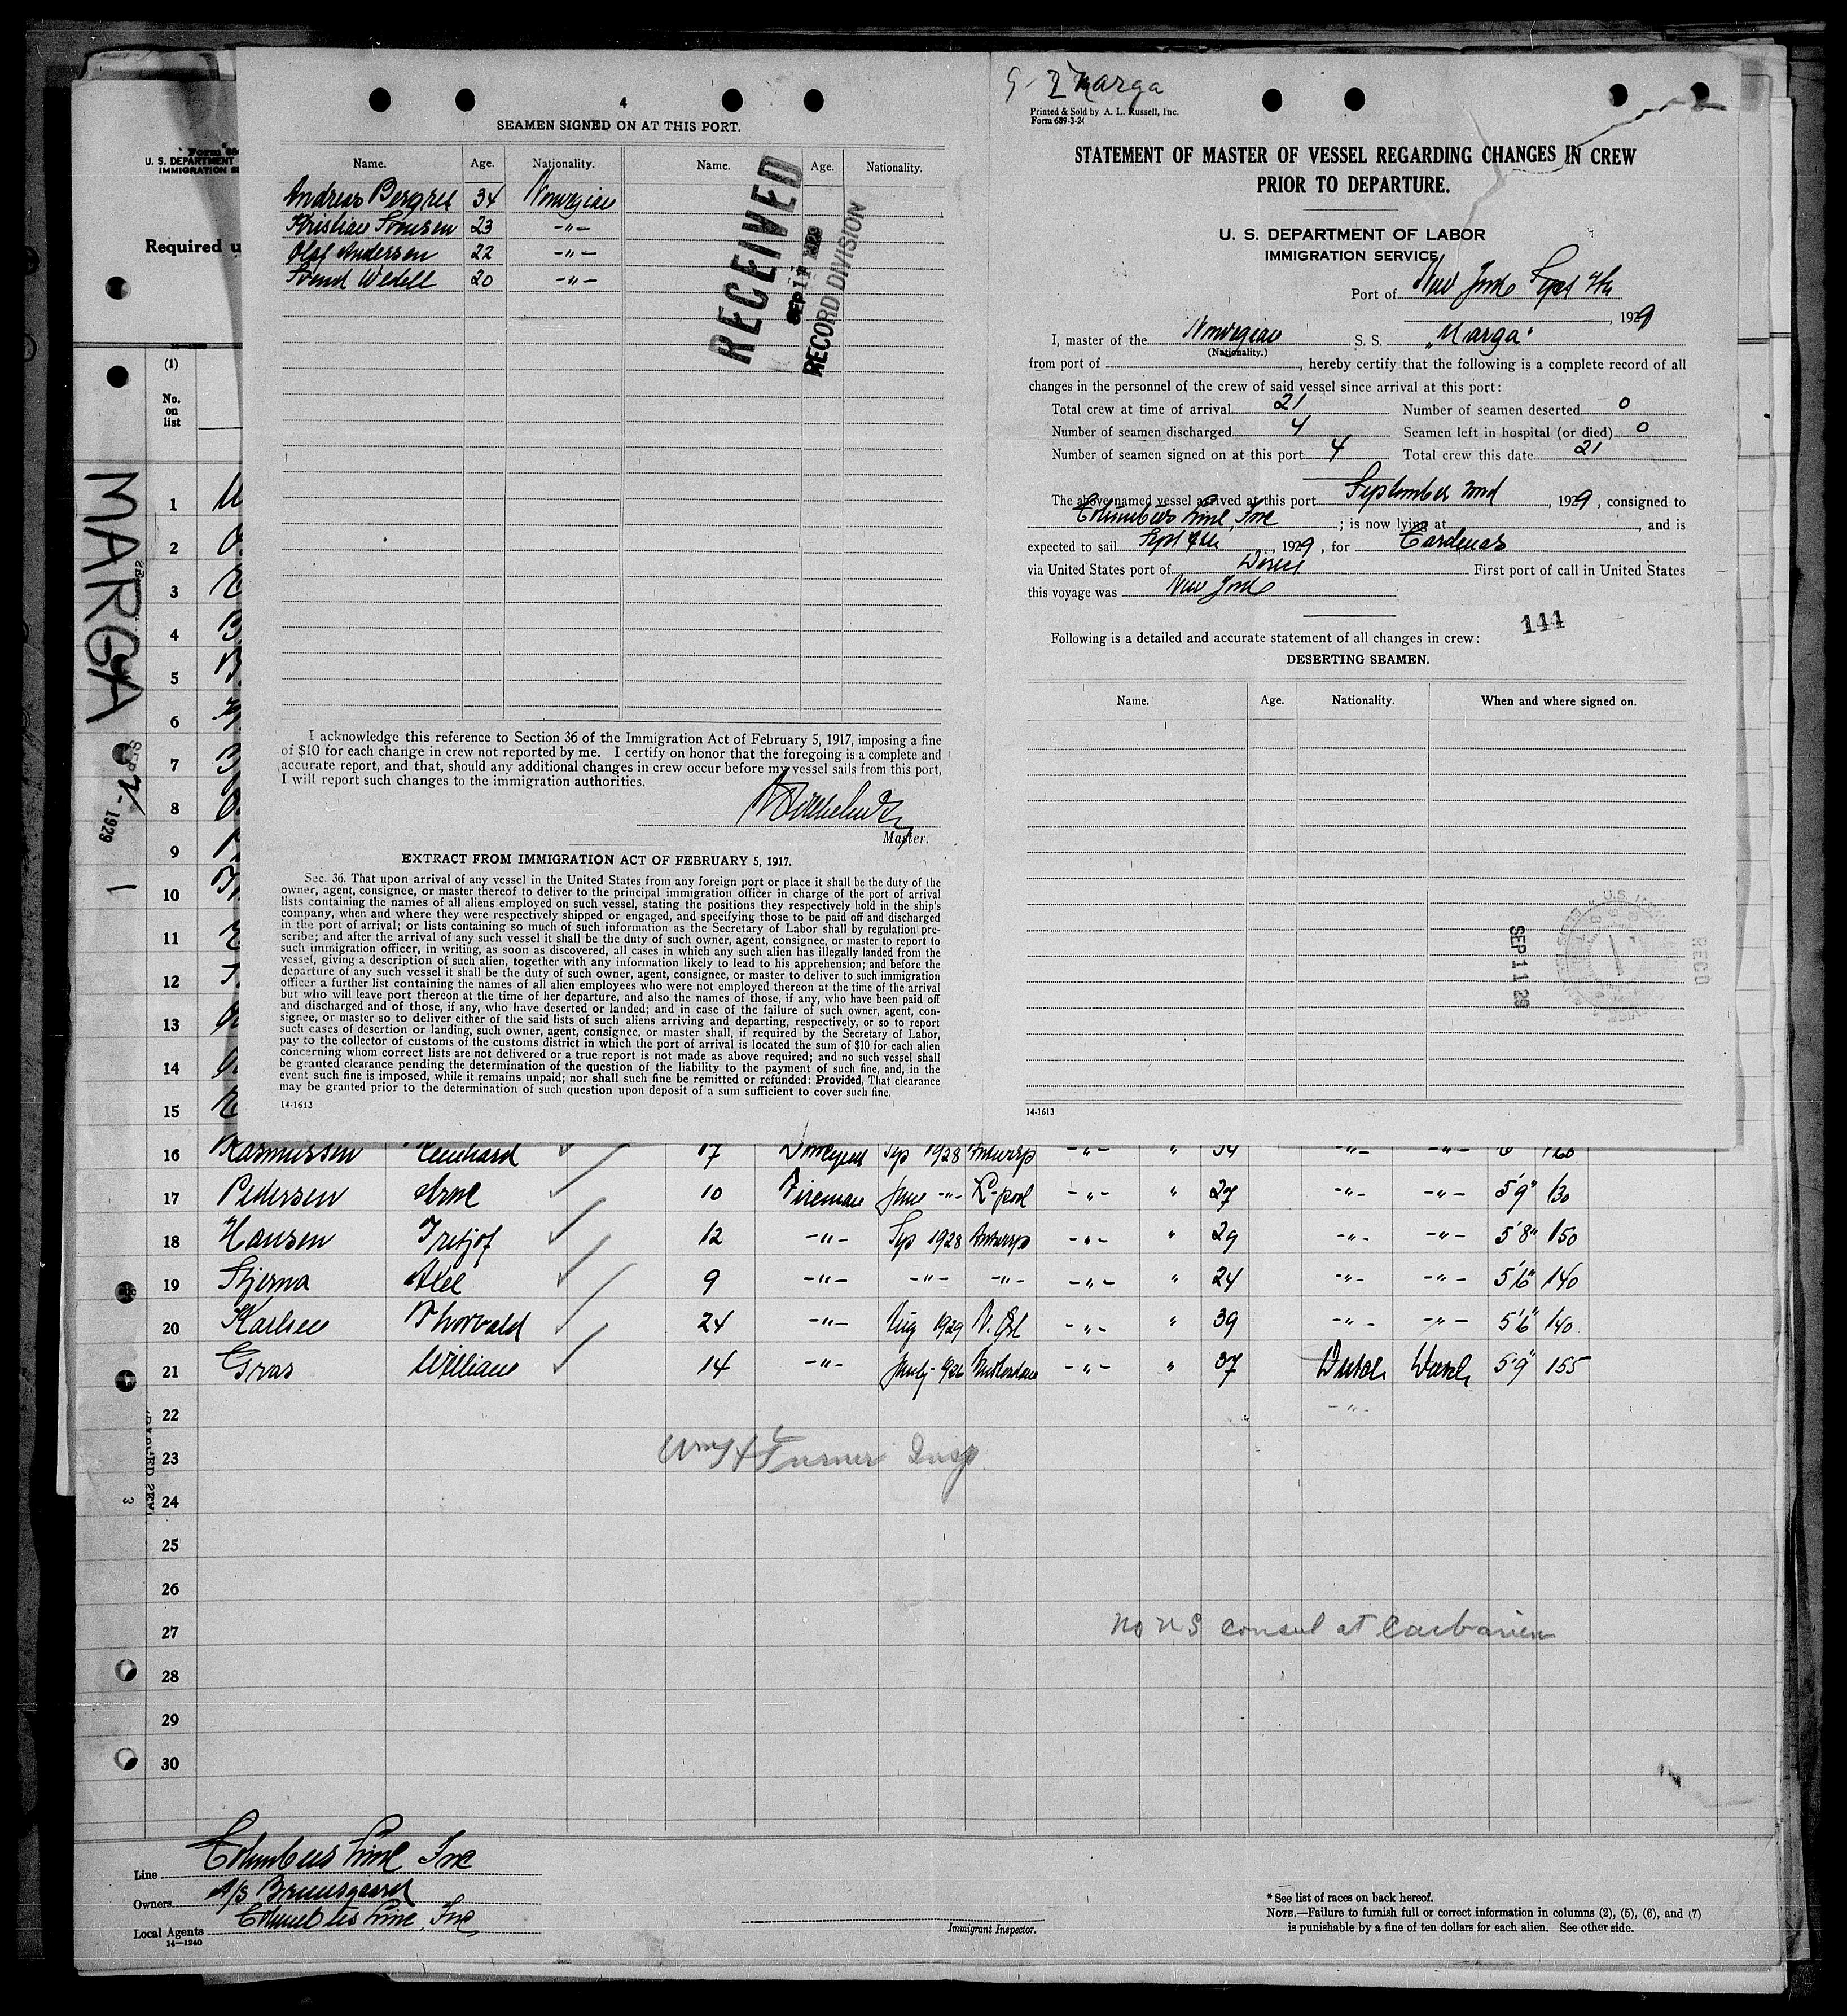 4
SEAMEN SIGNED ON AT THIS PORT.
Name. Age. Nationality. Name. Age. Nationality.
Andreas 34 Norwegian
Kristian 23 -"-
Olaf Andersen 22 -"-
Svend Wedell 20 -"-
RECEIVED
SEP 11 1929
RECORD DIVISION
I acknowledge this reference to Section 36 of the Immigration Act of February 5, 1917, imposing a fine
of $10 for each change in crew not reported by me. I certify on honor that the foregoing is a complete and
accurate report, and that, should any additional changes in crew occur before my vessel sails from this port,
I will report such changes to the immigration authorities.
Master.
EXTRACT FROM IMMIGRATION ACT OF FEBRUARY 5, 1917.
Sec. 36. That upon arrival of any vessel in the United States from any foreign port or place it shall be the duty of the
owner, agent, consignee, or master thereof to deliver to the principal immigration officer in charge of the port of arrival
lists containing the names of all aliens employed on such vessel, stating the positions they respectively hold in the ship's
company, when and where they were respectively shipped or engaged, and specifying those to be paid off and discharged
in the port of arrival; or lists containing so much of such information as the Secretary of Labor shall by regulation pre-
scribe; and after the arrival of any such vessel it shall be the duty of such owner, agent, consignee, or master to report to
such immigration officer, in writing, as soon as discovered, all cases in which any such alien has illegally landed from the
vessel, giving a description of such alien, together with any information likely to lead to his apprehension; and before the
departure of any such vessel it shall be the duty of such owner, agent, consignee, or master to deliver to such immigration
officer a further list containing the names of all alien employees who were not employed thereon at the time of the arrival
but who will leave port thereon at the time of her departure, and also the names of those, if any, who have been paid off
and discharged and of those, if any, who have deserted or landed; and in case of the failure of such owner, agent, con-
signee, or master so to deliver either of the said lists of such aliens arriving and departing, respectively, or so to report
such cases of desertion or landing, such owner, agent, consignee, or master shall, if required by the Secretary of Labor,
pay to the collector of customs of the customs district in which the port of arrival is located the sum of $10 for each alien
concerning whom correct lists are not delivered or a true report is not made as above required; and no such vessel shall
be granted clearance pending the determination of the question of the liability to the payment of such fine, and, in the
event such fine is imposed, while it remains unpaid; nor shall such fine be remitted or refunded: Provided, That clearance
may be granted prior to the determination of such question upon deposit of a sum sufficient to cover such fine.
14-1613
Marga
Printed & Sold by A. L. Russell, Inc.
Form 689-3-24
STATEMENT OF MASTER OF VESSEL REGARDING CHANGES IN CREW
PRIOR TO DEPARTURE.
U. S. DEPARTMENT OF LABOR
IMMIGRATION SERVICE
Port of New York Sept 4th
, 1929
I, master of the Norwegian S. S. "Marga"
(Nationality.)
from port of , hereby certify that the following is a complete record of all
changes in the personnel of the crew of said vessel since arrival at this port:
Total crew at time of arrival 21 Number of seamen deserted 0
Number of seamen discharged 4 Seamen left in hospital (or died) 0
Number of seamen signed on at this port 4 Total crew this date 21
The above-named vessel arrived at this port September 2nd, 1929, consigned to
Columbus Line, Inc ; is now lying at , and is
expected to sail Sept 4th, 1929, for Cardenas
via United States port of Direct First port of call in United States
this voyage was New York
144
Following is a detailed and accurate statement of all changes in crew:
DESERTING SEAMEN.
Name. Age. Nationality. When and where signed on.
SEP 11 29
RECD
14-1613
U. S. DEPARTMENT
IMMIGRATION
Required
(1)
No.
on
list
MARGA
SEP 2 - 1929
1
1
2
3
4
5
6
7
8
9
10
11
12
13
14
15
16 Rasmussen 17 Sep 1928 Antwerp -"- " 34 -"- -"- 6 160
17 Pedersen Arne 10 Fireman June -"- L-pool -"- " 27 -"- -"- 5'9" 130
18 Hansen Fritjof 12 -"- Sep 1928 Antwerp -"- " 29 -"- -"- 5'8" 150
19 Stjerna Axel 9 -"- -"- -"- -"- " 24 -"- -"- 5'6" 140
20 Karlsen Thorvald 24 -"- Aug 1929 -"- " 39 -"- -"- 5'6" 140
21 Gras William 14 -"- Amsterdam -"- " 37 Dutch Dutch 5'9" 155
22 -"-
23 Wm H Turner Insp
24
25
26
27 No US consul at Caibarien
28
29
30
Line Columbus Line Inc
Owners A/S Bruusgaard
Local Agents Columbus Line, Inc
14-1240
Immigrant Inspector.
* See list of races on back hereof.
NOTE.—Failure to furnish full or correct information in columns (2), (5), (6), and (7)
is punishable by a fine of ten dollars for each alien. See other side.